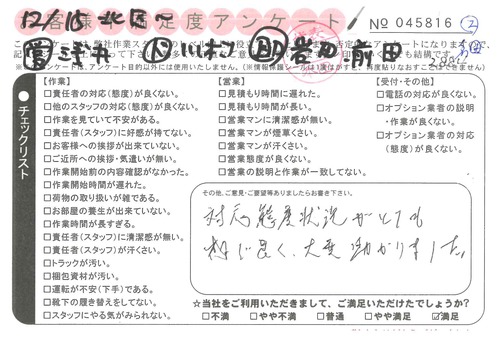 12/15 北區
お客様満足度アンケート
No 045816
チェックリスト
【作業】
□責任者の対応(態度)が良くない。
□他のスタッフの対応(態度)が良くない。
□作業を見ていて不安がある。
□責任者(スタッフ)に好感が持てない。
□お客様への挨拶が出来ていない。
□ご近所への挨拶・気遣いが無い。
□作業開始前の内容確認がなかった。
□作業開始時間が遅れた。
□荷物の取り扱いが雑である。
□お部屋の養生が出来ていない。
□作業時間が長すぎる。
□責任者(スタッフ)に清潔感が無い。
□責任者(スタッフ)が汗くさい。
□トラックが汚い。
□梱包資材が汚い。
□運転が不安(下手)である。
□靴下の履き替えをしてない。
□スタッフにやる気がみられない。
【営業】
□見積もり時間に遅れた。
□見積もり時間が長い。
□営業マンに清潔感が無い。
□営業マンが煙草くさい。
□営業マンが汗くさい。
□営業態度が良くない。
□営業の説明と作業が一致してない。
【受付・その他】
□電話の対応が良くない。
□オプション業者の説明
・作業が良くない。
□オプション業者の対応
(態度)が良くない。
その他、ご意見・ご要望等ありましたらお書き下さい。
対応態度状況がとても
良く、大変助かりました。
☆当社をご利用いただきまして、ご満足いただけたでしょうか?
□不満 □やや不満 □普通 □やや満足 ☑満足